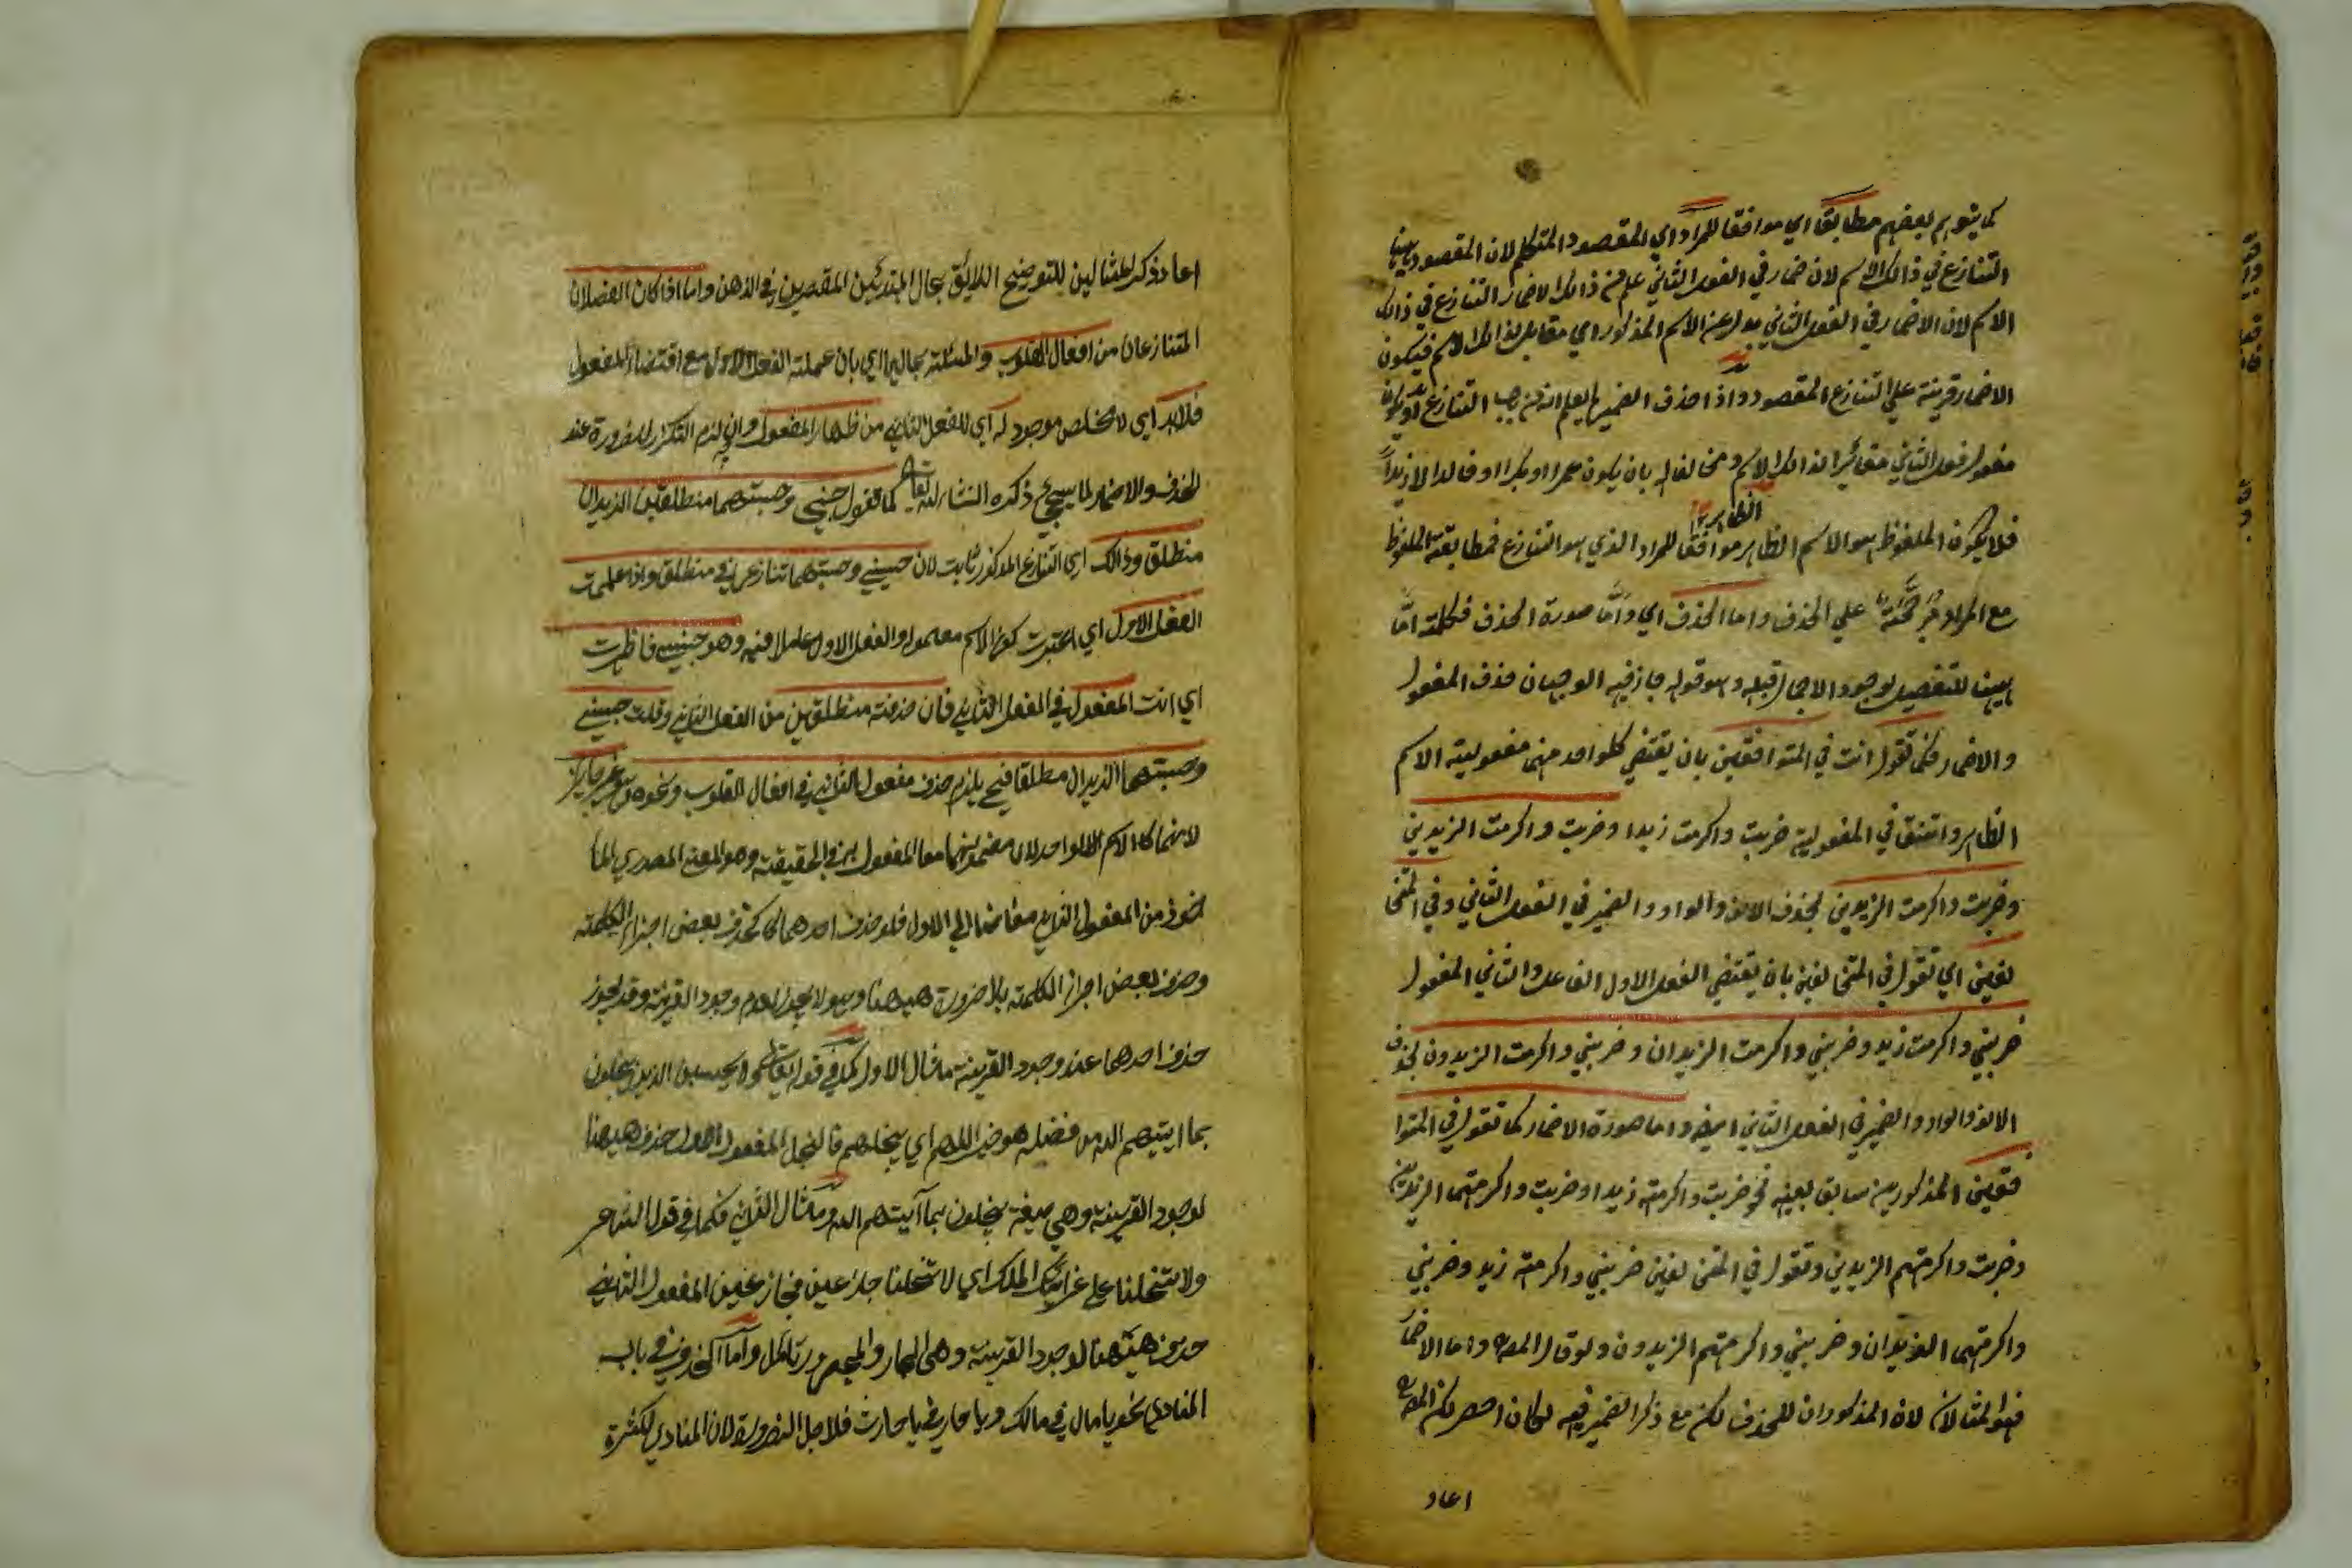 كما يتوهم بعضهم مطابقا اي موافقا للمراد اي المقصود المتكلم لان المقصود ههنا
التنازع في ذالك الاسم لان ضمار في الفعل الثاني علم من ذالك الاضمار التنازع في ذالك
الاسم لان الاضمار في الفعل الثاني بدل عن الاسم المذكور اي مقابل لذالك الاسم فيكون
الاضمار قرينة علي التنازع المقصود واذا حذف الضمير لم يعلم انه من باب التنازع او يكون
مفعول فعل الثاني مغائرا لذالك الاسم ومخالفا له بان يكون عمرا او بكرا او خالدا لا زيدا
فلا يكون الملفوظ هو الاسم الظاهر موافقا للمراد الذي هو التنازع فمطابقة الملفوظ
الظاهر
مع المراد مرجحة علي الحذف واما الحذف اي واما صورة الحذف فكلمة اما
ههنا للتفصيل لوجود الاجمال قبله وهو قوله جاز فيه الوجهان حذف المفعول
والاضمار فكما تقول انت في المتوافقين بان يقتضي كلواحد منهما مفعولية الاسم
الظاهر واتفق في المفعولية ضربت واكرمت زيدا وضربت واكرمت الزيدين
وضربت واكرمت الزيدين بحذف الالف والواو والضمير في الفعل الثاني وفي المتخا
لفين اي تقول في المتخالفين بان يقتضي الفعل الاول الفاعل والثاني المفعول
ضربني واكرمت زيد وضربني واكرمت الزيدان وضربني واكرمت الزيدون بحذف
الالف والواو والضمير في الفعل الثاني ايضا واما صورة الاضمار كما تقول في المتوا
فقين المذكورين سابق بعينه نحو ضربت واكرمته زيدا وضربت واكرمتهما الزيدين
وضربت واكرمتهم الزيدين وتقول في المتخالفين ضربني واكرمته زيد وضربني
واكرمتهما الزيدان وضربني واكرمتهم الزيدون ولو قال المص واما الاضمار
فهو المثالان لان المذكوران للحذف لكن مع ذكر الضمير فيه لكان اخصر لكن المص
اعاد
اعاد ذكر المثالين للتوضيح اللائق بحال المبتدئين المقصرين في الذهن واما اذا كان الفعلان
المتنازعان من افعال القلوب والمسئلة بحالها اي بان عملت الفعل الاول مع اقتضاء المفعول
فلا بد اي لا مخلص موجود له اي للفعل الثاني من اظهار المفعول وان لزم التكرار للضرورة عند
الحذف والاضمار لما سيجئ ذكره انشاء الله تعالى كما تقول حسبني وحسبتهما منطلقين الزيدان
منطلق وذالك اي التنازع المذكور ثابت لان حسبني وحسبتهما تنازعن في منطلق واذا علمت
الفعل الاول اي اعتبرت كون الاسم معلموا والفعل الاول عاملا فيه وهو حسبني فاظهرت
اي انت المفعول في الفعل الثاني فان حذفت منطلقين من الفعل الثاني وقلت حسبني
وحسبتهما الزيدان مطلقا فح يلزم حذف مفعول الثاني في افعال القلوب ونحوه وهو غير جائز
لانهما كالاسم الواحد لان مضمونهما معا المفعول به في الحقيقة وهو المعنى المصدري الما
خوذ من المفعول الثاني مضافا الي الاول فلو حذف احدهما كان كحذف بعض اجزاء الكلمة
وحذف بعض اجزاء الكلمة بلا ضرورة ههنا وهو لا يجوز لعدم وجود القرينة وقد يجوز
حذف احدهما عند وجود القرينة مثال الاول كما في قوله تعالى ولا يحسبن الذين يبخلون
بما اتيهم الله من فضله هو خيرا لهم اي بخلهم فالبخل المفعول الاول حذف ههنا
لوجود القرينة وهي صيغة يبخلون بما آتيهم الله ومثال الثاني فكما في قول الشاعر
ولا تخلنا علي غرائك الملك اي لا تخلنا جازعين فجازعين المفعول الثاني
حذف ههنا لوجود القرينة وهي الجار والمجرور تامل واما الحذف في باب
المنادي نحو يا مال في مالك ويا حار في يا حارث فلاجل الضرورة لان المنادي لكثرة